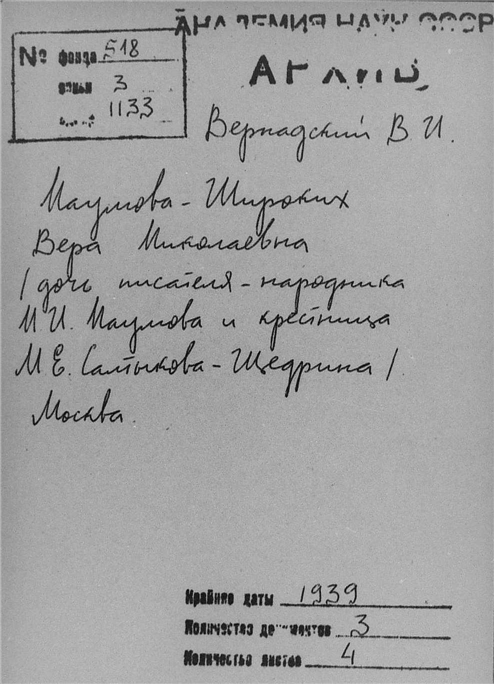 АКАДЕМИЯ НАУК СССР
АРХИВ
№ фонда 518
описи 3
1133
Вернадский В. И.
Наумова - Широких
Вера Николаевна
/ дочь писателя - народника
Н. И. Наумова и крестница
М. Е. Салтыкова - Щедрина /.
Москва
Крайние даты 1939
Количество документов 3
Количество листов 4